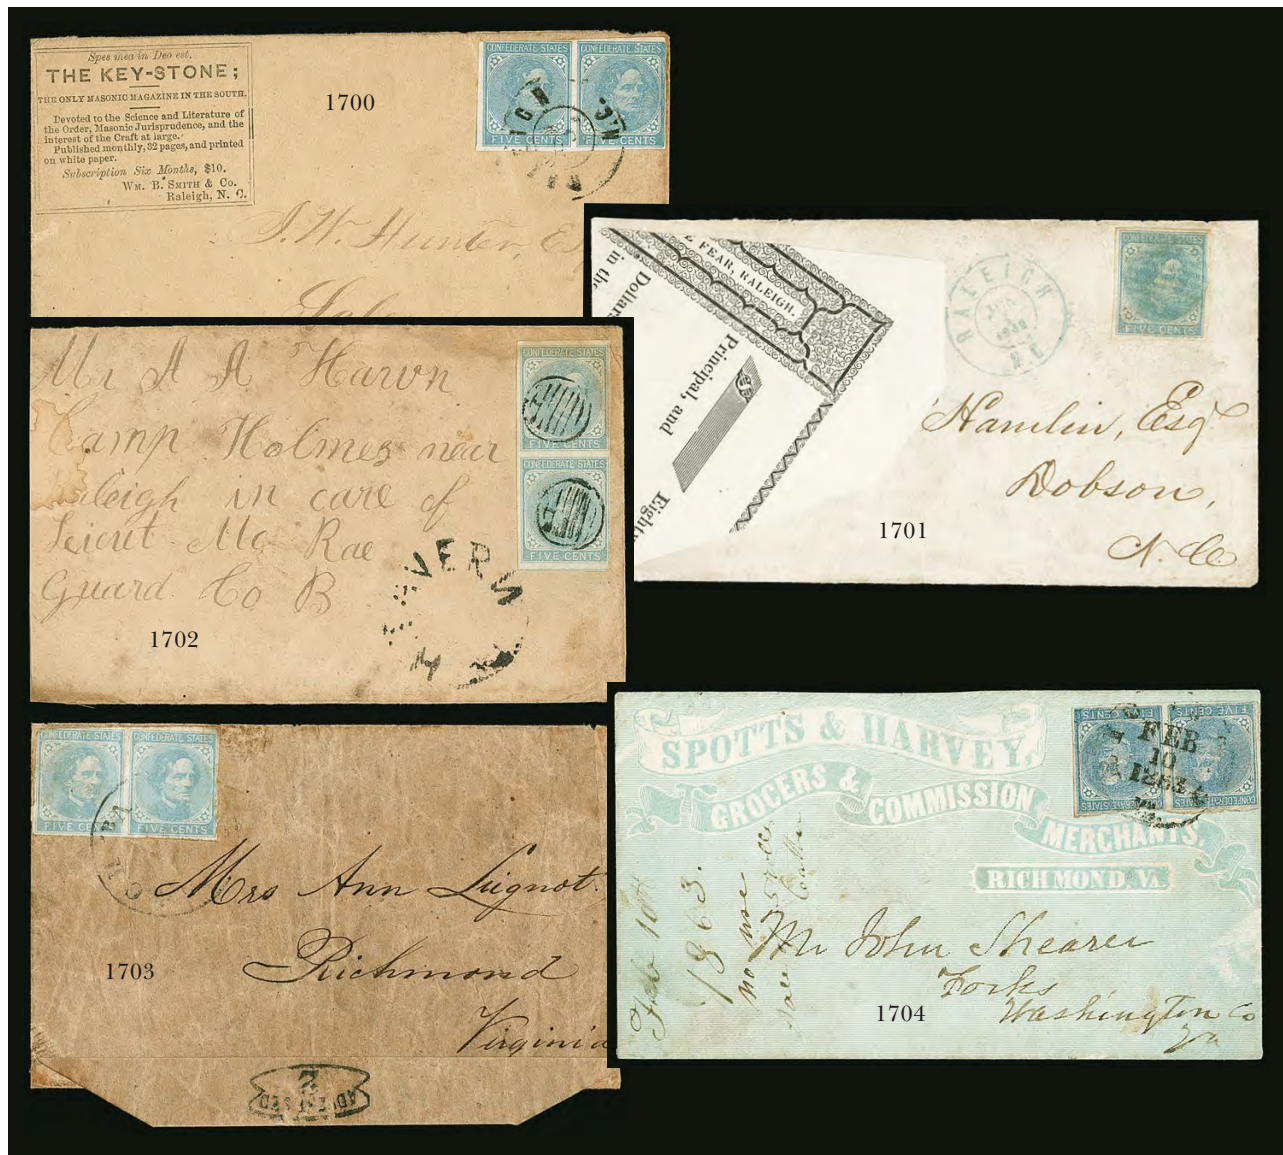 Spes mea in Deo est.
THE KEY-STONE;
THE ONLY MASONIC MAGAZINE IN THE SOUTH.
Devoted to the Science and Literature of
the Order, Masonic Jurisprudence, and the
interest of the Craft at large.
Published monthly, 32 pages, and printed
on white paper.
Subscription Six Months, $10.
WM. B. SMITH & CO.
Raleigh, N. C.
1700
CONFEDERATE STATES
CONFEDERATE STATES
FIVE CENTS
FIVE CENTS
N.C.
J. W. Hunter, Es
FEAR, RALEIGH.
in the
Dollars
Principal, and
Eighty
RALEIGH
N. C.
CONFEDERATE STATES
FIVE CENTS
Hamlin, Esq
Dobson,
N. Ca
1701
Mr A A Hawn
Camp Holmes near
leigh in care of
Lieut. Mc Rae
Guard Co B
1702
CONFEDERATE STATES
FIVE CENTS
CONFEDERATE STATES
FIVE CENTS
CONFEDERATE STATES
CONFEDERATE STATES
FIVE CENTS
FIVE CENTS
Mrs Ann Lugnot.
Richmond
Virginia
1703
2
SPOTTS & HARVEY,
GROCERS &
COMMISSION
MERCHANTS,
RICHMOND, VA.
FIVE CENTS
FIVE CENTS
CONFEDERATE STATES
FEB
10
1863
Feb 10th
1863.
no use
Mr John Shearer
Forks
Washington Co
Va
1704